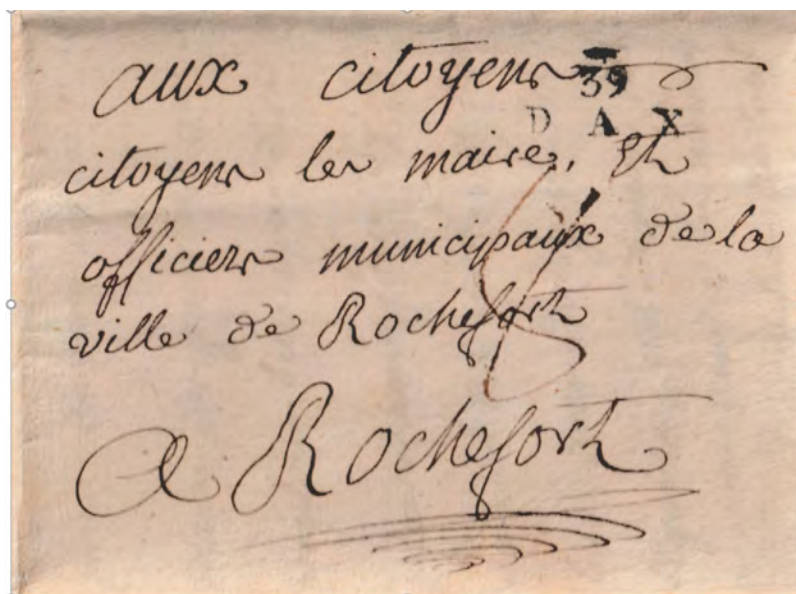 aux citoyens
39
DAX
citoyens les maire, et
officiers municipaux de la
ville de Rochefort
8
A Rochefort